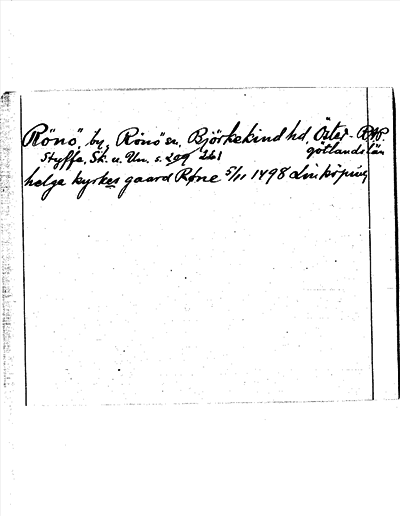 Rönö, by, Rönö sn, Björkekind hd, Öster- RAP.
götlands län
Styffe, Sk. u. Un. s. 209 261
helga kyrkes gaard Røne 5/11 1498 Linköping